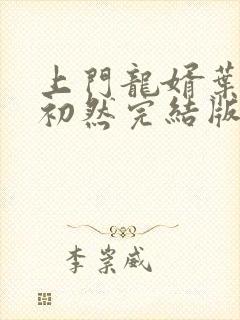 上門龍婿葉
初然完結版
李崇威